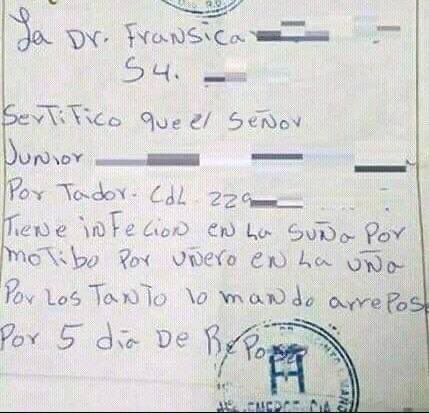 La Dr. Fransica
Su.
Sertifico que el Señor
Junior
Por Tador. Cdl. 229
Tiene infecion en La Suña Por
motibo Por uñero en La uña
Por Los Tanto lo mando arrepose
Por 5 dia De Reposo
EMERGENCIA